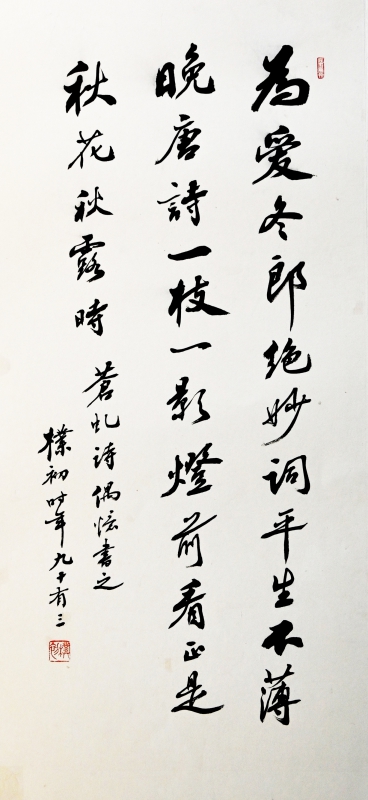 為愛冬郎絶妙詞平生不薄
晚唐詩一枝一影燈前看正是
秋花秋露時
蒼虬詩偶憶書之
樸初時年九十有三